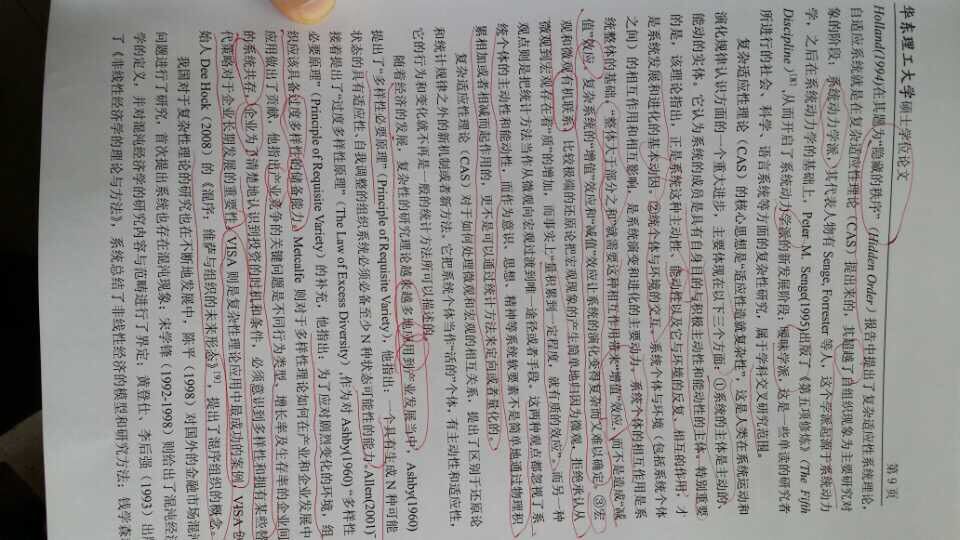 华东理工大学硕士学位论文 第 9 页
Holland(1994)在其题为"隐藏的秩序"（Hidden Order）报告中提出了复杂适应性系统理论，
自适应系统就是在复杂适应性理论（CAS）提出来的，其超越了自组织现象为主要研究对
象的阶段；系统动力学派，其代表人物有 Senge, Forrester 等人，这个学派起源于系统动力
学，之后在系统动力学的基础上，Peter. M. Senge(1995)出版了《第五项修炼》（The Fifth
Discipline）[8]，从而开启了系统动力学派的新发展阶段；暧昧学派，这是一些单读的研究者
所进行的社会、科学、语言系统等方面的复杂性研究，属于学科交叉研究范围。
复杂适应性理论（CAS）的核心思想是"适应性造就复杂性"，这是人类在系统运动和
演化规律认识方面的一个重大进步，主要体现在以下三个方面：①系统的主体是主动的、
能动的实体。它认为系统的成员是具有自身目的与积极主动性和能动性的主体。特别重要
的是，该理论指出，正是系统这种主动性、能动性以及它与环境的反复、相互的作用，才
是系统发展和进化的基本动因。②统个体与环境的交互。系统个体与环境（包括系统个体
之间）的相互作用和相互影响，是系统演变和进化的主要动力。系统个体的相互作用是系
统整体的基础，"整体大于部分之和"就需要这种相互作用带来"增值"效应，而不是造成"减
值"效应。复杂系统的"增值"效应和"减值"效应让系统的演化变得复杂而又难以确定。③宏
观和微观有机联系。比较极端的还原论把宏观现象的产生简单地归因为微观，拒绝承认从
微观到宏观存在着"质"的增加，而事实上"量积累到一定程度，就有质的效应"。而另一种
观点则是把统计方法当作从微观向宏观过渡到唯一途径或者手段。这两种观点都忽视了系
统个体的主动性和能动性，而作为意识、思想、精神等系统软要素不是简单地通过物理积
累相加或者相减而起作用的，更不是可以通过统计方法来定向或者量化的。
复杂适应性理论（CAS）对于如何处理微观和宏观的相互关系，提出了区别于还原论
和统计规律之外的新机制或者新方法。它把系统个体当作"活的"个体，有主动性和适应性，
它的行为和变化就不再是一般的统计方法所可以描述的。
随着经济的发展，复杂性的研究理论越来越多地应用到产业发展当中，Ashby(1960)
提出了"多样性必要原理"（Principle of Requisite Variety），他指出，一个具有生成 N 种可能
状态的具有适应性、自我调整的组织系统必须必备至少 N 种状态可能性的能力。Allen(2001)
接着提出了"过度多样性原理"（The Law of Excess Diversity），作为对 Ashby(1960) "多样性
必要原理"（Principle of Requisite Variety）的补充，他指出，为了应对剧烈变化的环境，组
织应该具备过度多样性的储备能力。Metcalfe 则对于多样性理论如何在产业和企业发展中
应用做出了贡献，他指出产业竞争的关键问题是不同行为类型、增长率及生存率的企业间
的系统共存，企业为了清楚地认识到投资的时机和条件，必须意识到多样性和拥有某些替
代策略对于企业长期发展的重要性。VISA 则是复杂性理论应用中最成功的案例，VISA 创
始人 Dee Hock（2008）的《混序：维萨与组织的未来形态》[9]，提出了混序组织的概念。
我国对于复杂性理论的研究也在不断地发展中，陈平（1998）对国外的金融市场混沌
问题进行了研究，首次提出系统也存在混沌现象；宋学锋（1992-1998）则给出了混沌经济
学的定义，并对混沌经济学的研究内容与范畴进行了界定；黄登仕、李后强（1993）出版
了《非线性经济学的理论与方法》，系统总结了非线性经济的模型和研究方法；钱学森